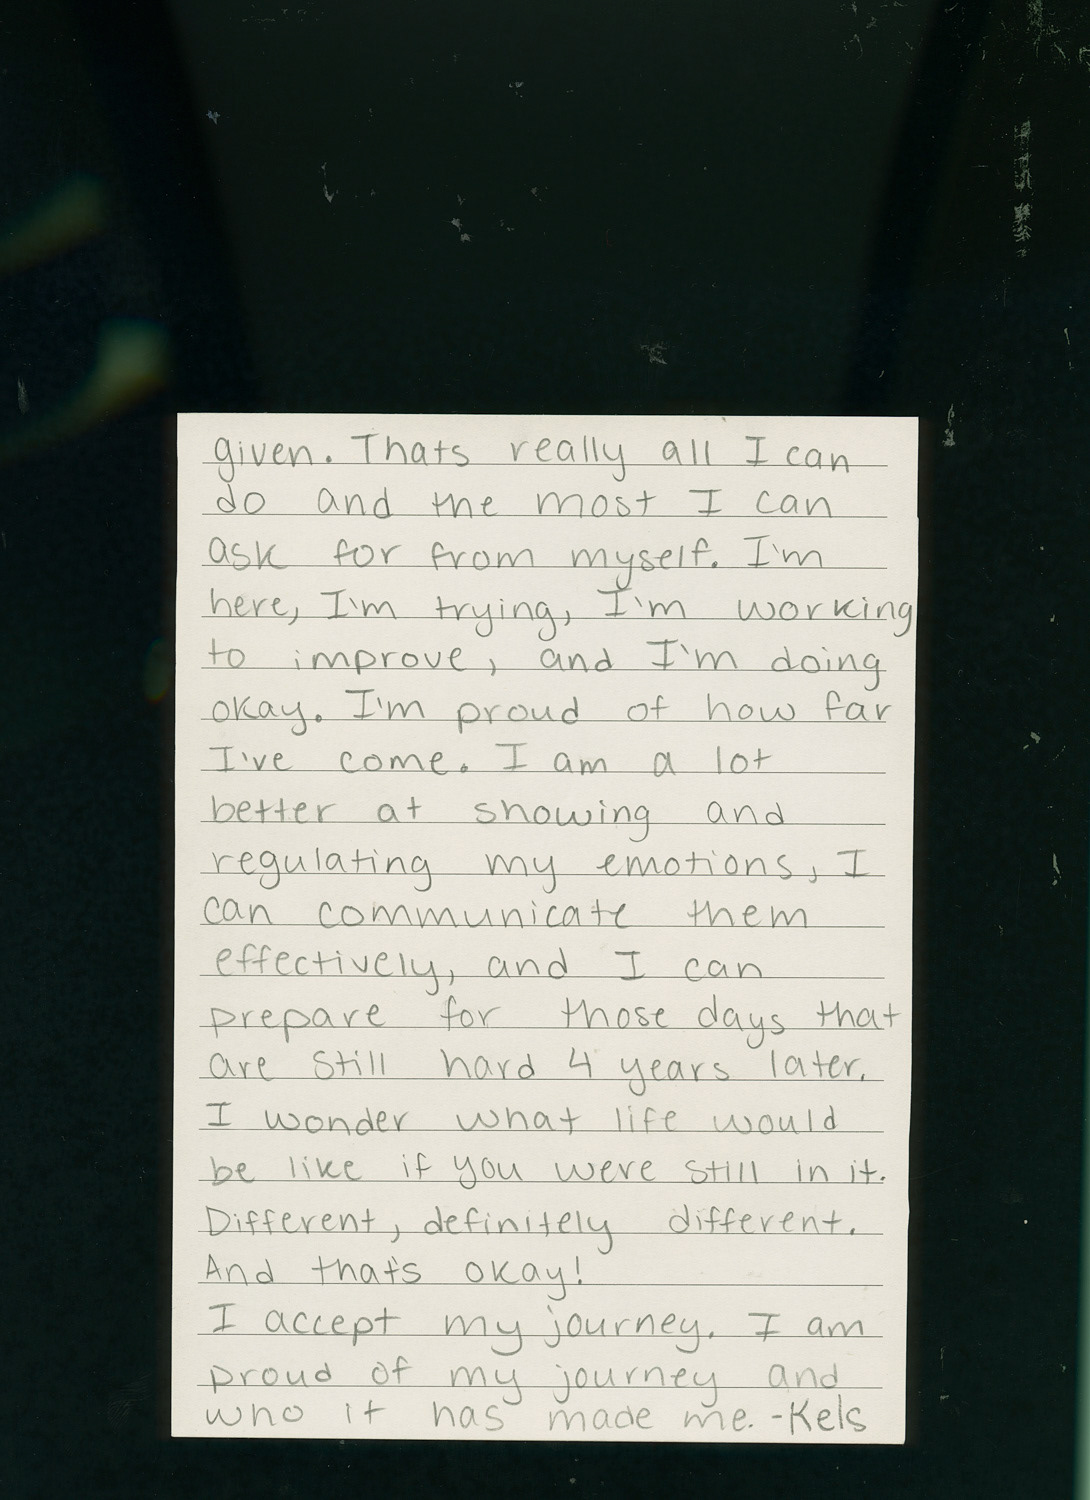 given. Thats really all I can
do and the most I can
ask for from myself. I'm
here, I'm trying, I'm working
to improve, and I'm doing
okay. I'm proud of how far
I've come. I am a lot
better at showing and
regulating my emotions, I
can communicate them
effectively, and I can
prepare for those days that
are still hard 4 years later.
I wonder what life would
be like if you were still in it.
Different, definitely different.
And that's okay!
I accept my journey. I am
proud of my journey and
who it has made me. -Kels